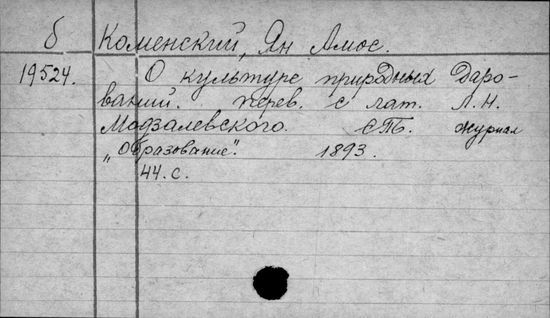 б Коменский, Ян Амос.
19524. О культуре природных даро-
ваний. перев. с лат. Л. Н.
Модзалевского. СПб. журнал
„Образование“. 1893.
44. с.